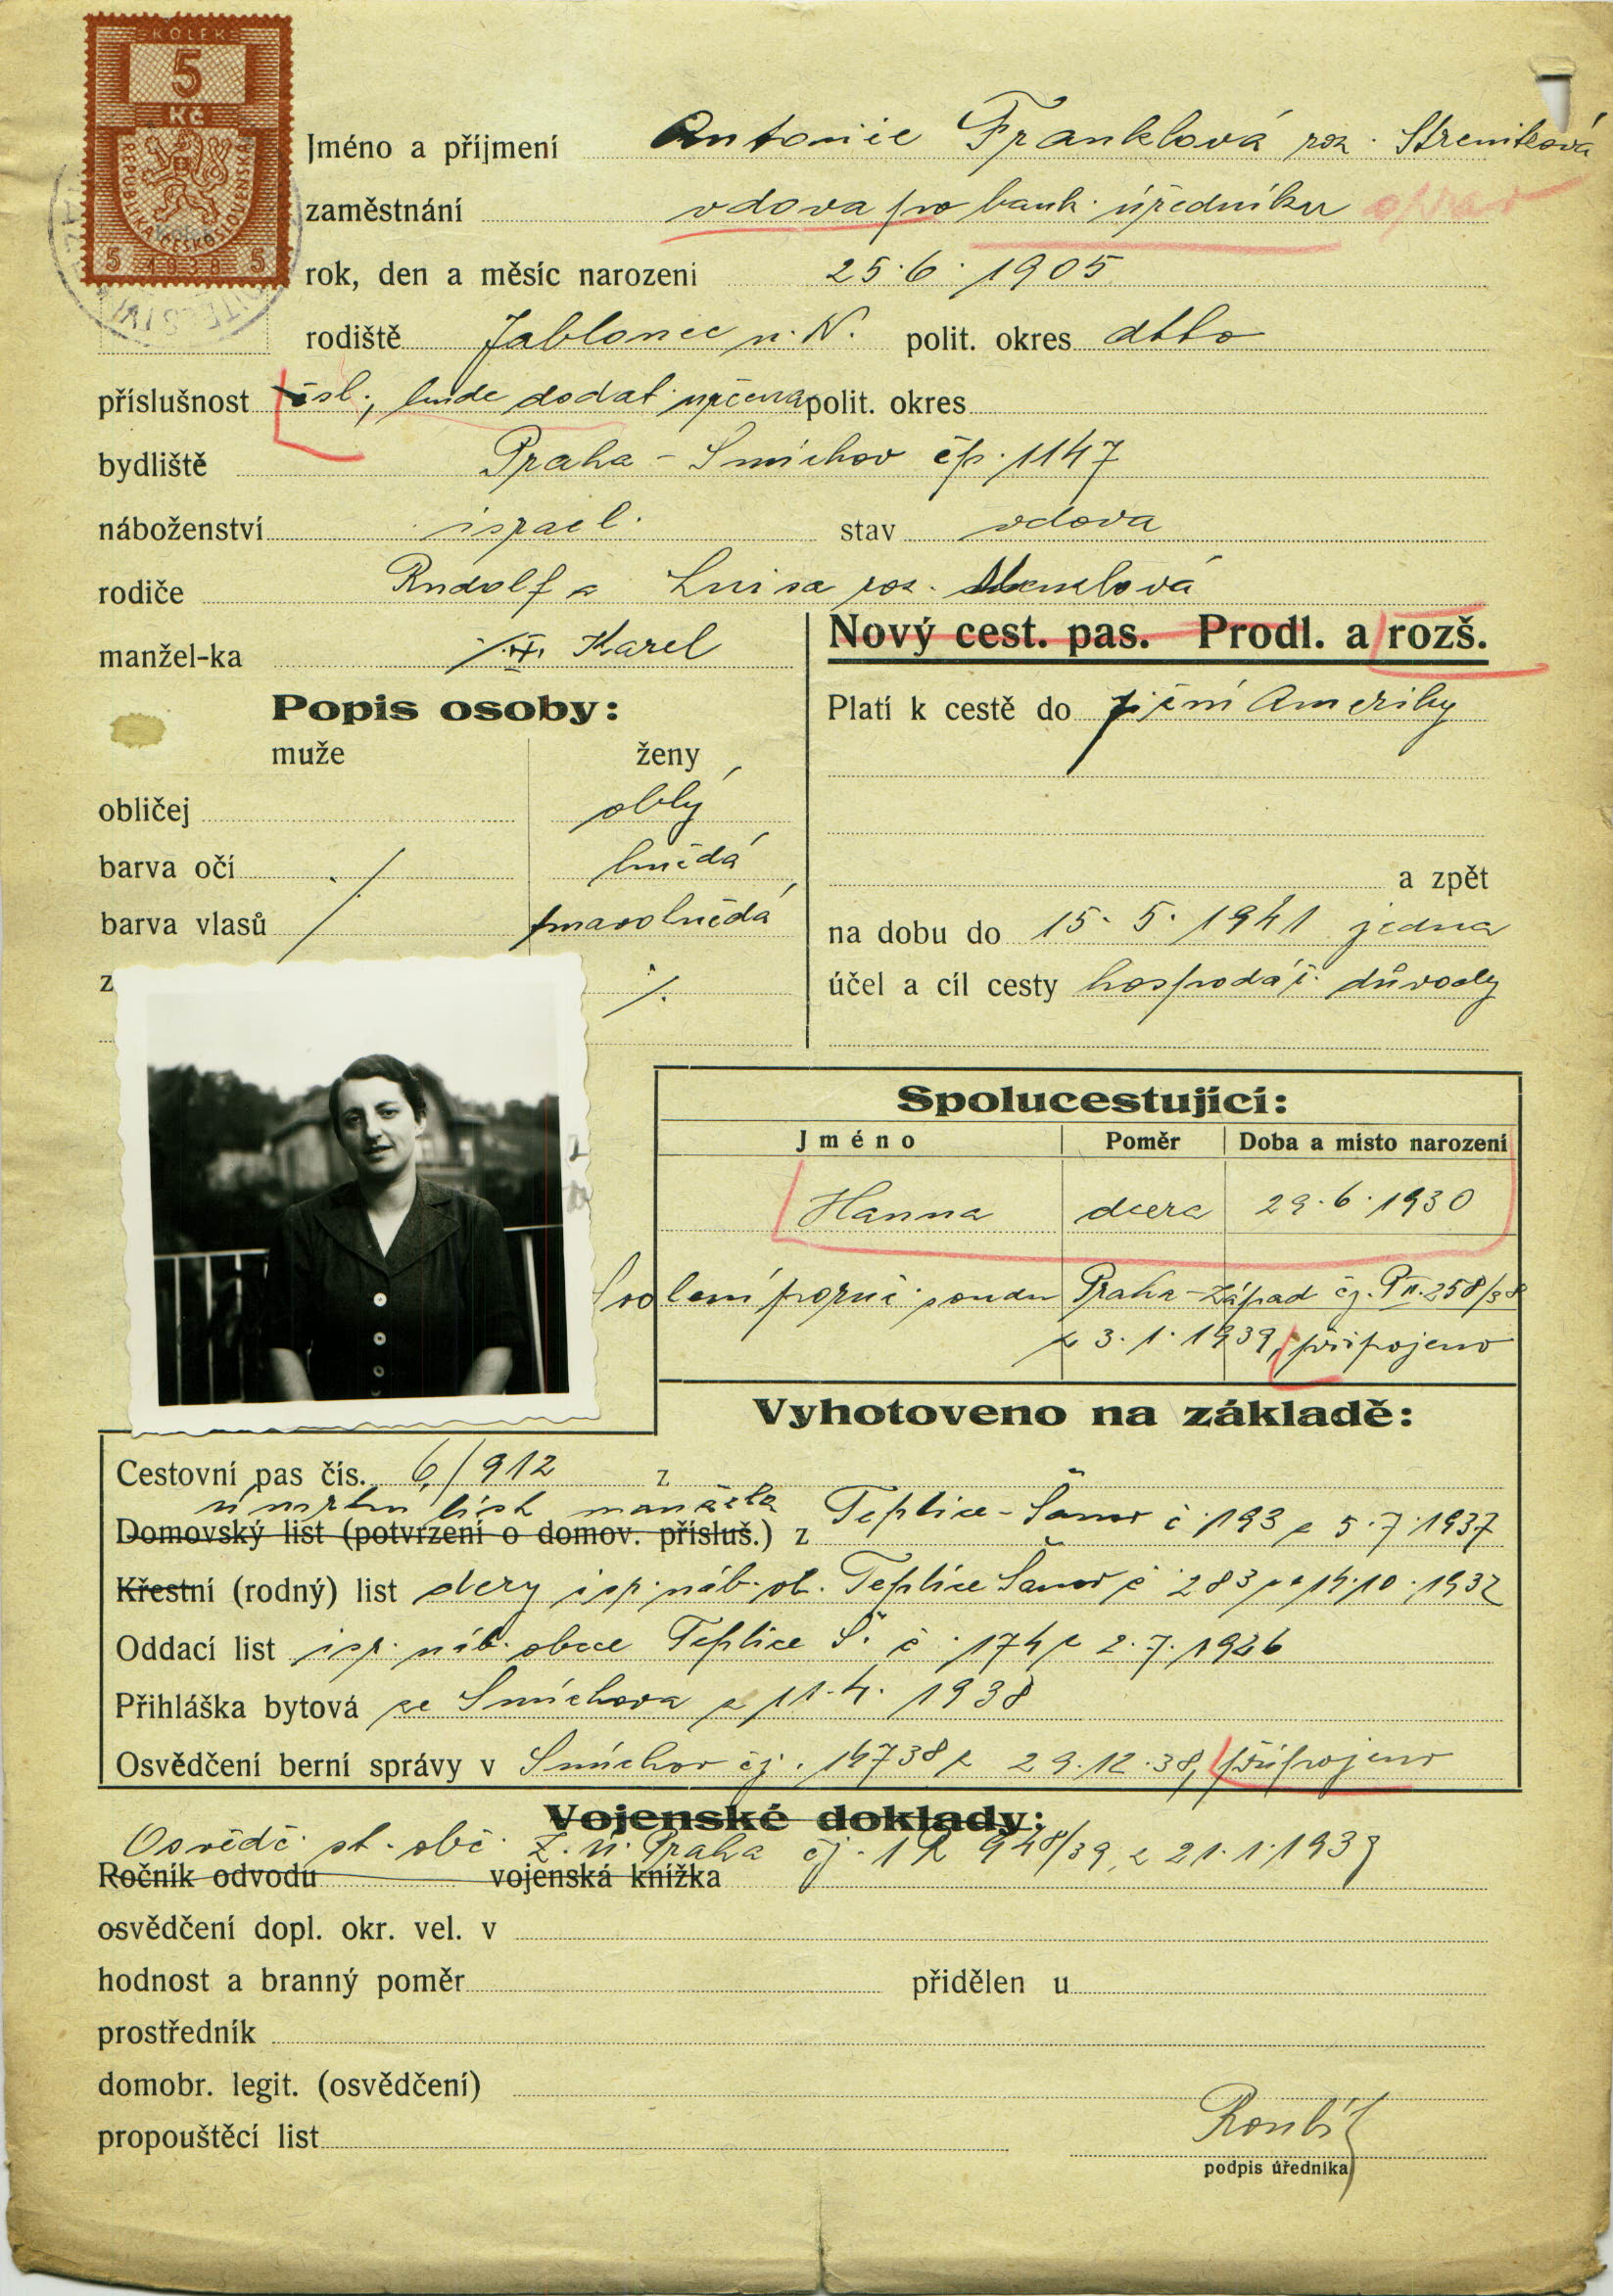 KOLEK
5
Kč
REPUBLIKA ČESKOSLOVENSKÁ
5 1938 5
Jméno a příjmení Antonie Franklová roz.
zaměstnání vdova po bank. úředníku oprav
rok, den a měsíc narozeni 25.6.1905
rodiště Jablonec n. N. polit. okres dtto
příslušnost čsl., bude dodat. polit. okres
bydliště Praha - Smíchov čp. 1147
náboženství israel. stav vdova
rodiče Rudolf a Luisa roz.
manžel-ka Karel
Nový cest. pas. Prodl. a rozš.
Popis osoby:
muže ženy
Platí k cestě do jižní Ameriky
obličej oblý
barva očí hnědá
a zpět
barva vlasů tmavohnědá
na dobu do 15. 5. 1941 jedna
z
účel a cíl cesty hospodář. důvody
Spolucestující:
Jméno Poměr Doba a misto narození
Hanna dcera 29.6.1930
Svolení poruč. soudu Praha-Západ čj. P II. 258/38
z 3.1.1939, připojeno
Vyhotoveno na základě:
Cestovní pas čís. 6/912 z
úmrtní list manžela Teplice-Šanov č 193 z 5.7.1937
Domovský list (potvrzení o domov. přísluš.) z
Křestní (rodný) list dcery isr. náb. ob. Teplice Šanov č 283 14.10.1932
Oddací list isr. náb. obce Teplice Š. č. 174 z 2.7.1926
Přihláška bytová ze Smíchova z 11.4. 1938
Osvědčení berní správy v Smíchov čj. 14738 z 29.12.38, připojeno
Vojenské doklady:
Osvědč. st. obč. Z. ú. Praha čj. 948/39 z 21.1.1939
Ročník odvodu vojenská knížka
osvědčení dopl. okr. vel. v
hodnost a branný poměr přidělen u
prostředník
domobr. legit. (osvědčení)
propouštěcí list
podpis úředníka